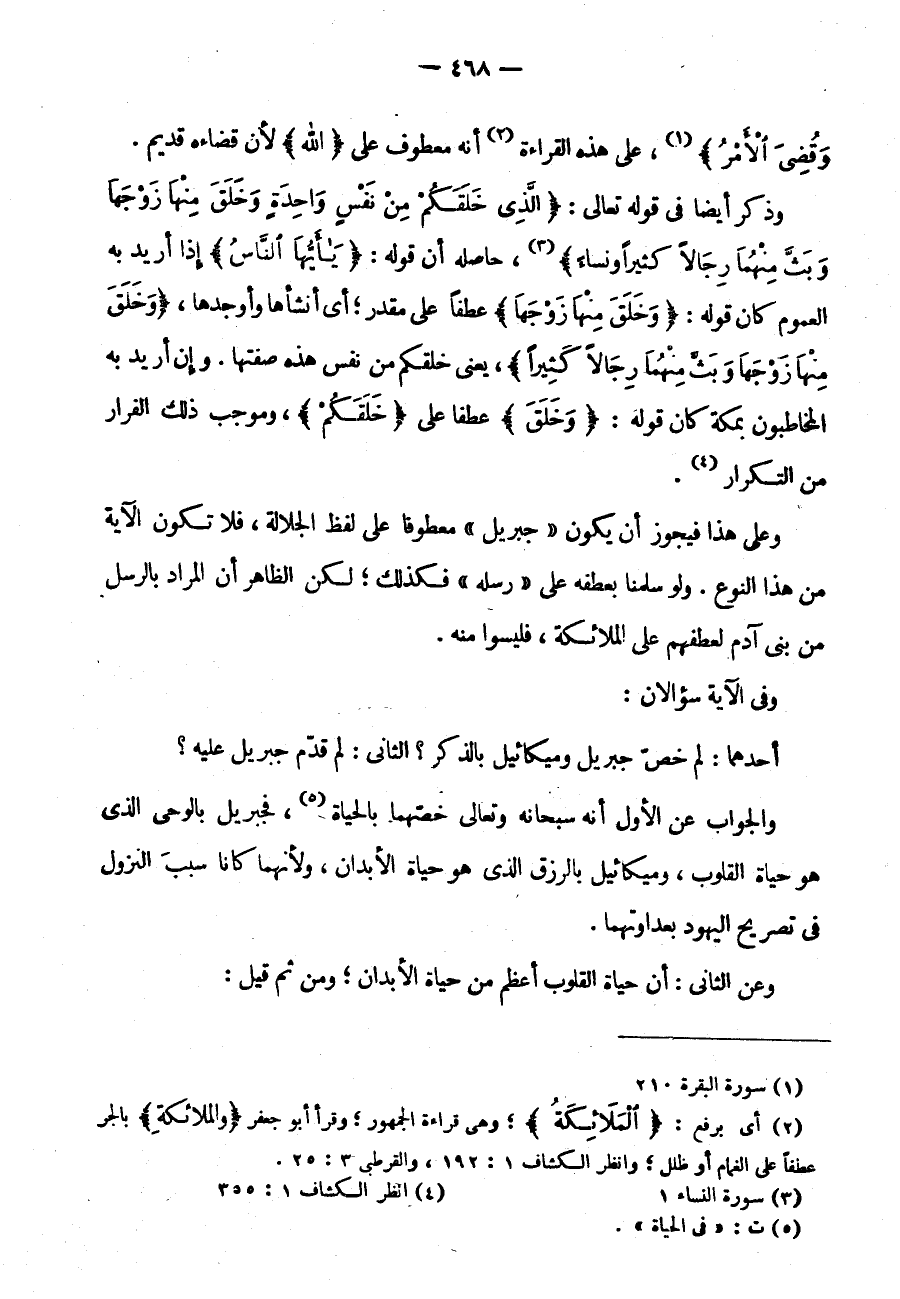 — ٤٦٨ —
وَقُضِىَ ٱلْأَمْرُ ﴾ (١) ، على هذه القراءة (٢) أنه معطوف على ﴿ الله ﴾ لأن قضاءه قديم .
وذكر أيضا فى قوله تعالى : ﴿ الَّذِى خَلَقَكُمْ مِنْ نَفْسٍ وَاحِدَةٍ وَخَلَقَ مِنْهَا زَوْجَهَا
وَبَثَّ مِنْهُمَا رِجَالاً كثيراً ونساء ﴾ (٣) ، حاصله أن قوله : ﴿ يَـٰأَيُّهَا ٱلنَّاسُ ﴾ إذا أريد به
العموم كان قوله : ﴿ وَخَلَقَ مِنْهَا زَوْجَهَا ﴾ عطفاً على مقدر ؛ أى أنشأها وأوجدها ، ﴿ وَخَلَقَ
مِنْهَا زَوْجَهَا وَبَثَّ مِنْهُمَا رِجَالاً كَثِيراً ﴾ ، يعنى خلقكم من نفس هذه صفتها . وإن أريد به
المخاطبون بمكة كان قوله : ﴿ وَخَلَقَ ﴾ عطفا على ﴿ خَلَقَكُمْ ﴾ ، وموجب ذلك الفرار
من التكرار (٤) .
وعلى هذا فيجوز أن يكون « جبريل » معطوفا على لفظ الجلالة ، فلا تكون الآية
من هذا النوع . ولو سلمنا بعطفه على « رسله » فكذلك ؛ لكن الظاهر أن المراد بالرسل
من بنى آدم لعطفهم على الملائكة ، فليسوا منه .
وفى الآية سؤالان :
أحدهما : لم خصّ جبريل وميكائيل بالذكر ؟ الثانى : لم قدّم جبريل عليه ؟
والجواب عن الأول أنه سبحانه وتعالى خصّهما بالحياة (٥) ، فجبريل بالوحى الذى
هو حياة القلوب ، وميكائيل بالرزق الذى هو حياة الأبدان ، ولأنهما كانا سببَ النزول
فى تصريح اليهود بعداوتهما .
وعن الثانى : أن حياة القلوب أعظم من حياة الأبدان ؛ ومن ثم قيل :
(١) سورة البقرة ٢١٠
(٢) أى برفع : ﴿ ٱلْمَلَائِكَةُ ﴾ ؛ وهى قراءة الجمهور ؛ وقرأ أبو جعفر ﴿ والملائكةِ ﴾ بالجر
عطفاً على الغمام أو ظلل ؛ وانظر الكشاف ١ : ١٩٢ ، والقرطبى ٣ : ٢٥ .
(٣) سورة النساء ١ (٤) انظر الكشاف ١ : ٣٥٥
(٥) ت : « فى الحياة » .